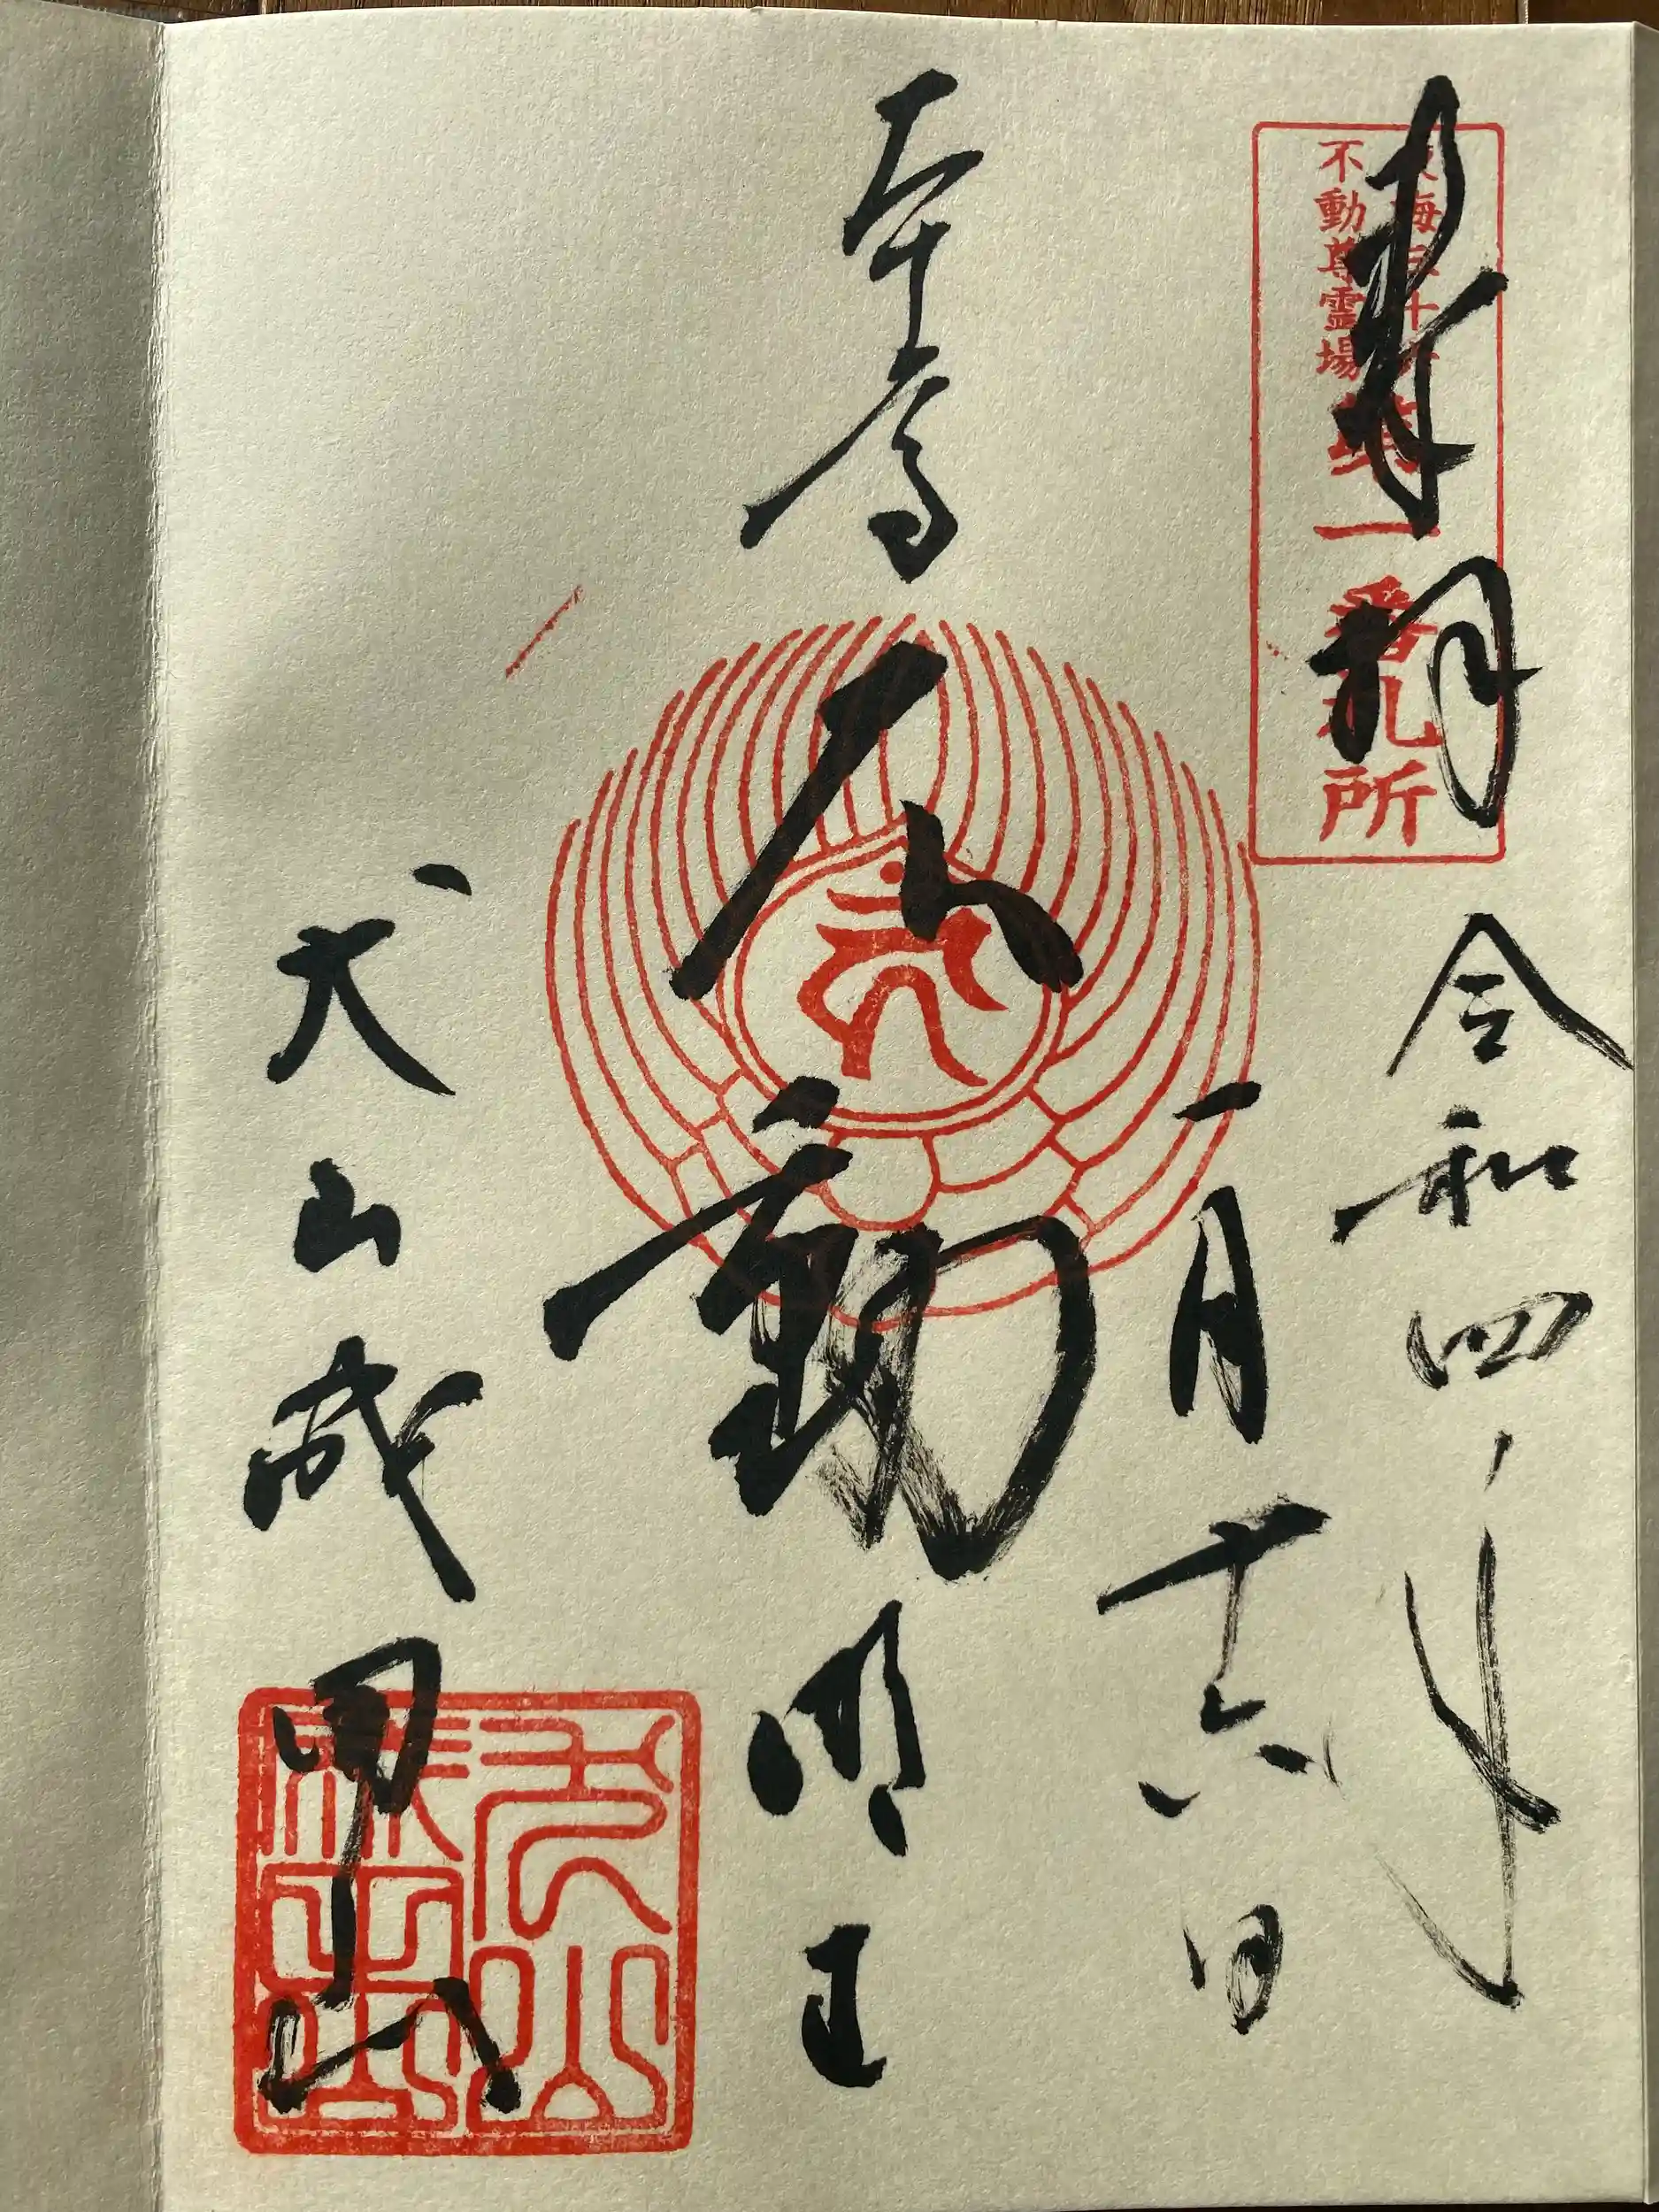 東海三十六
不動尊霊場
第一番札所
奉拝
令和四年
一月十六日
本尊
不動明王
犬山成田山